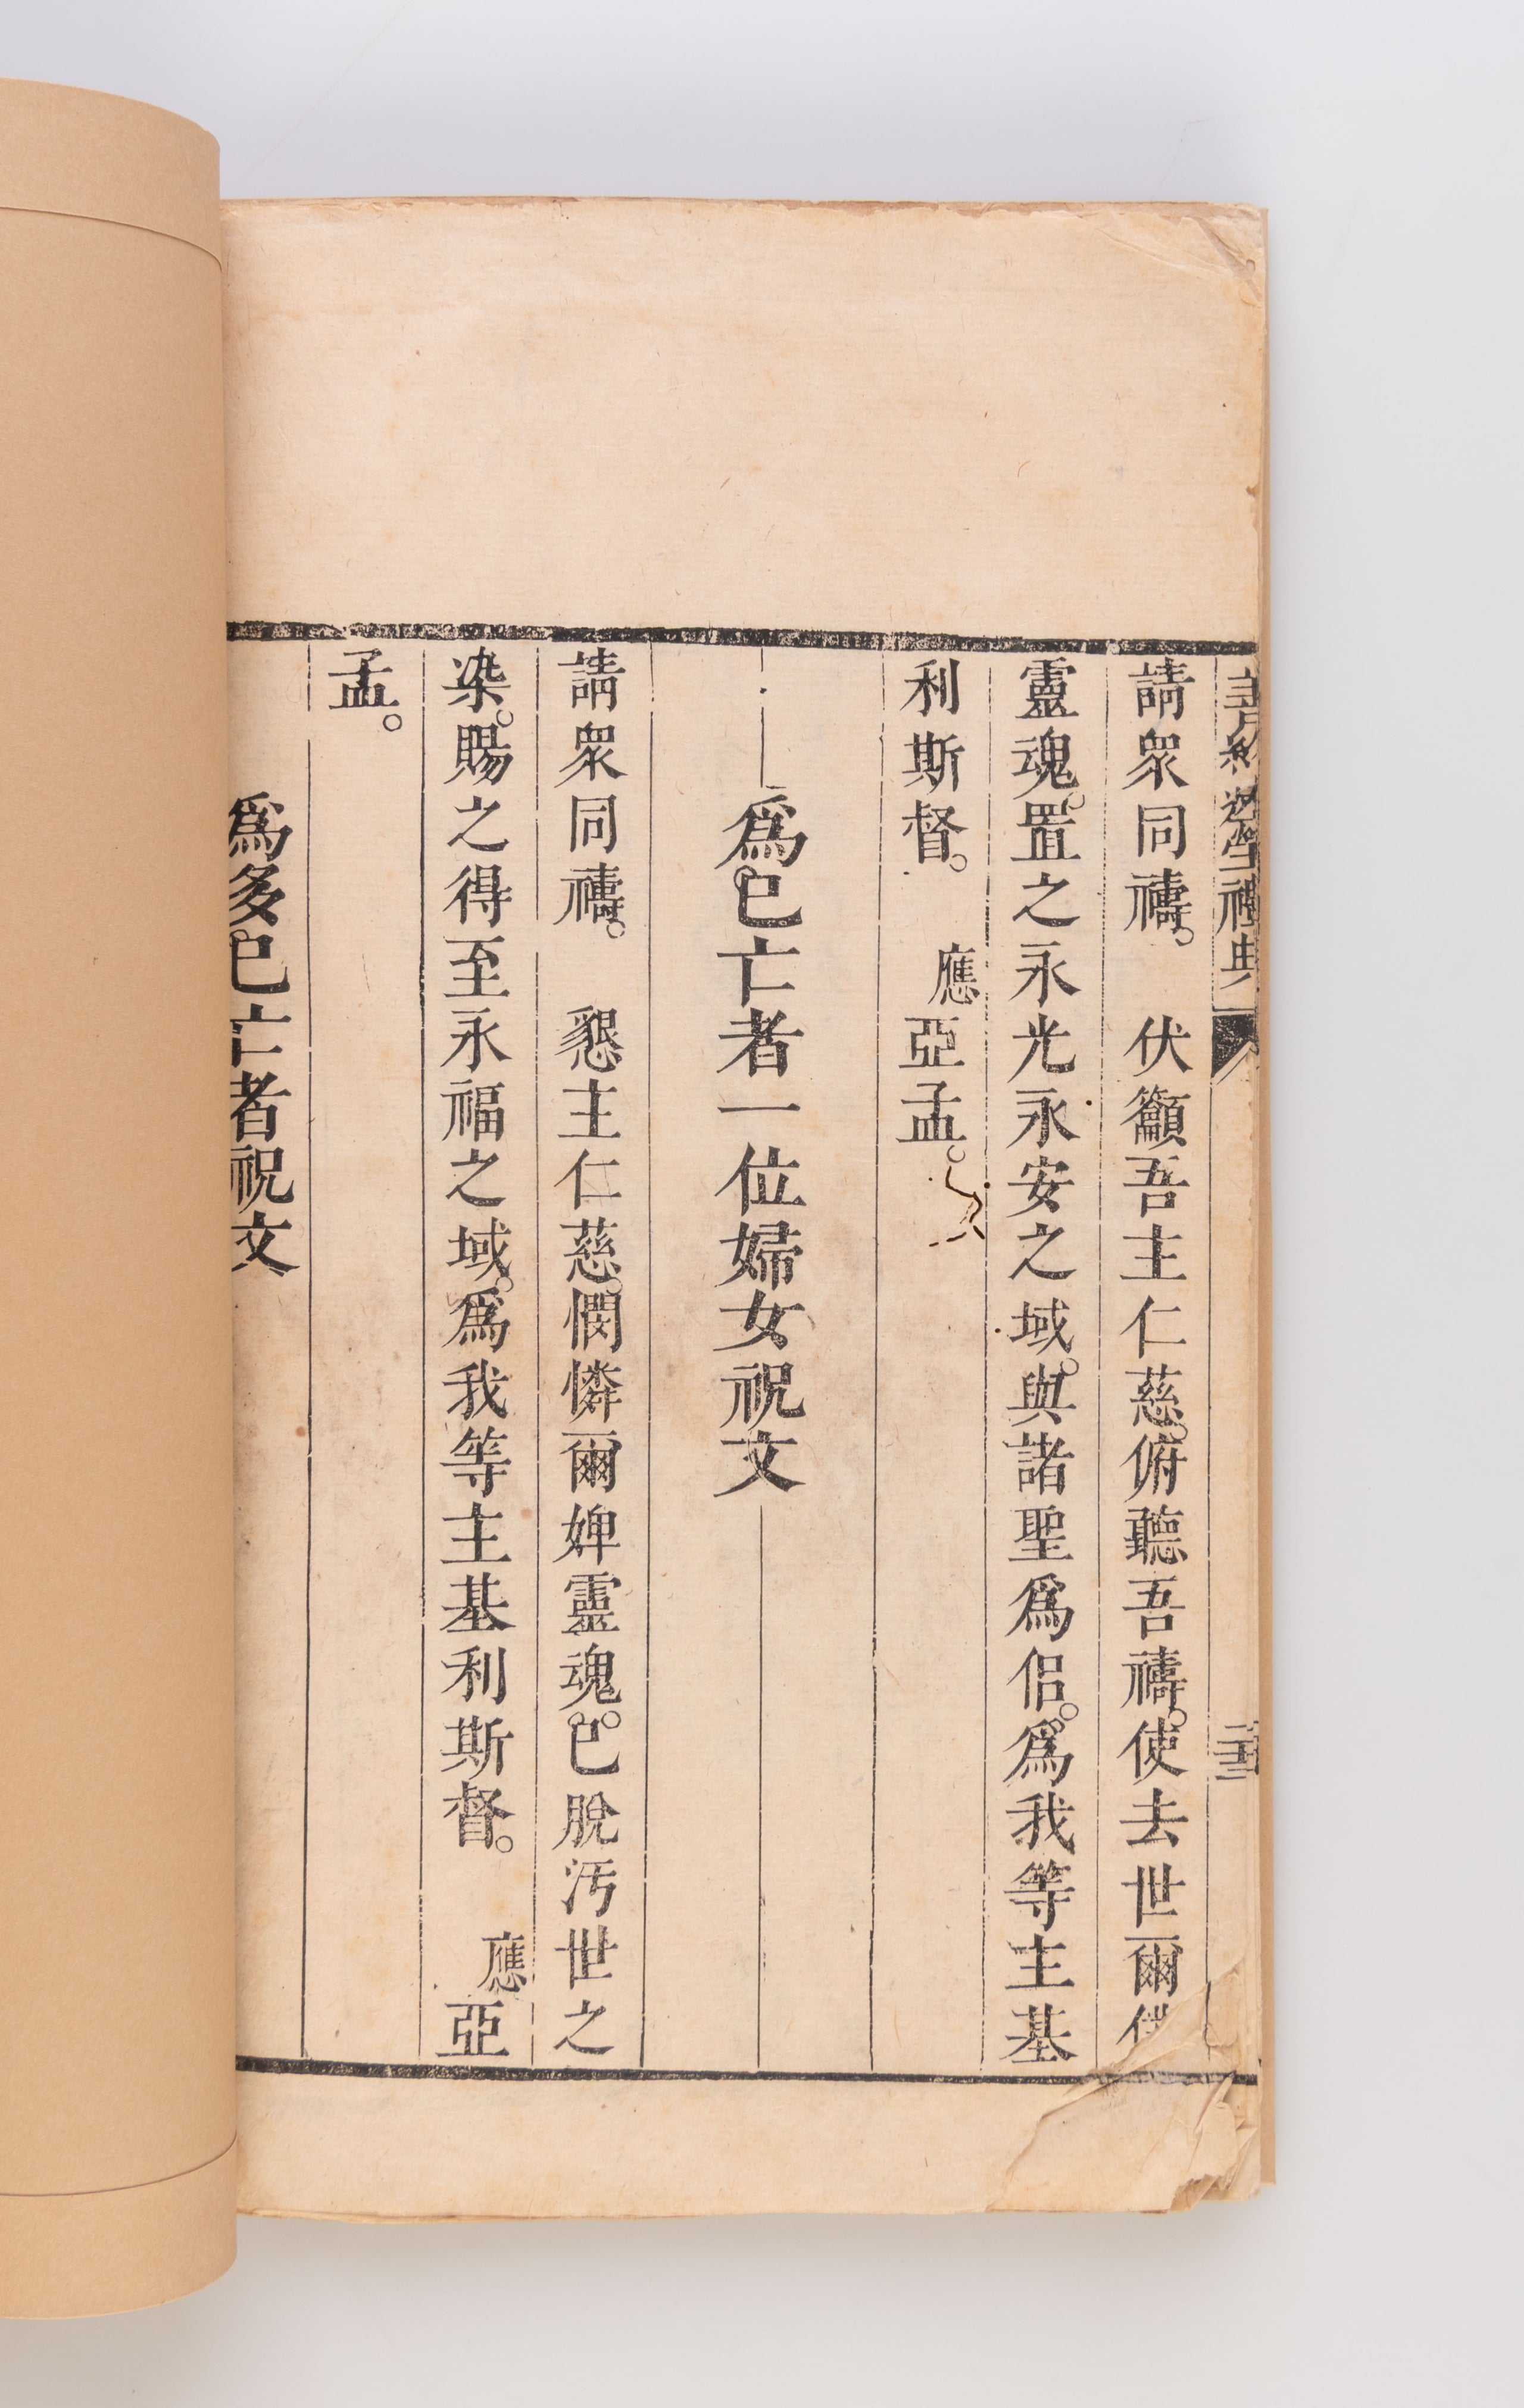 禮典
請衆同禱。　伏籲吾主仁慈。俯聽吾禱。使去世爾
靈魂。置之永光永安之域。與諸聖爲侶。爲我等主基
利斯督。　應亞孟。
爲已亡者一位婦女祝文
請衆同禱。　懇主仁慈。憫憐爾婢靈魂。已脫汚世之
染。賜之得至永福之域。爲我等主基利斯督。　應亞
孟。
爲多已亡者祝文